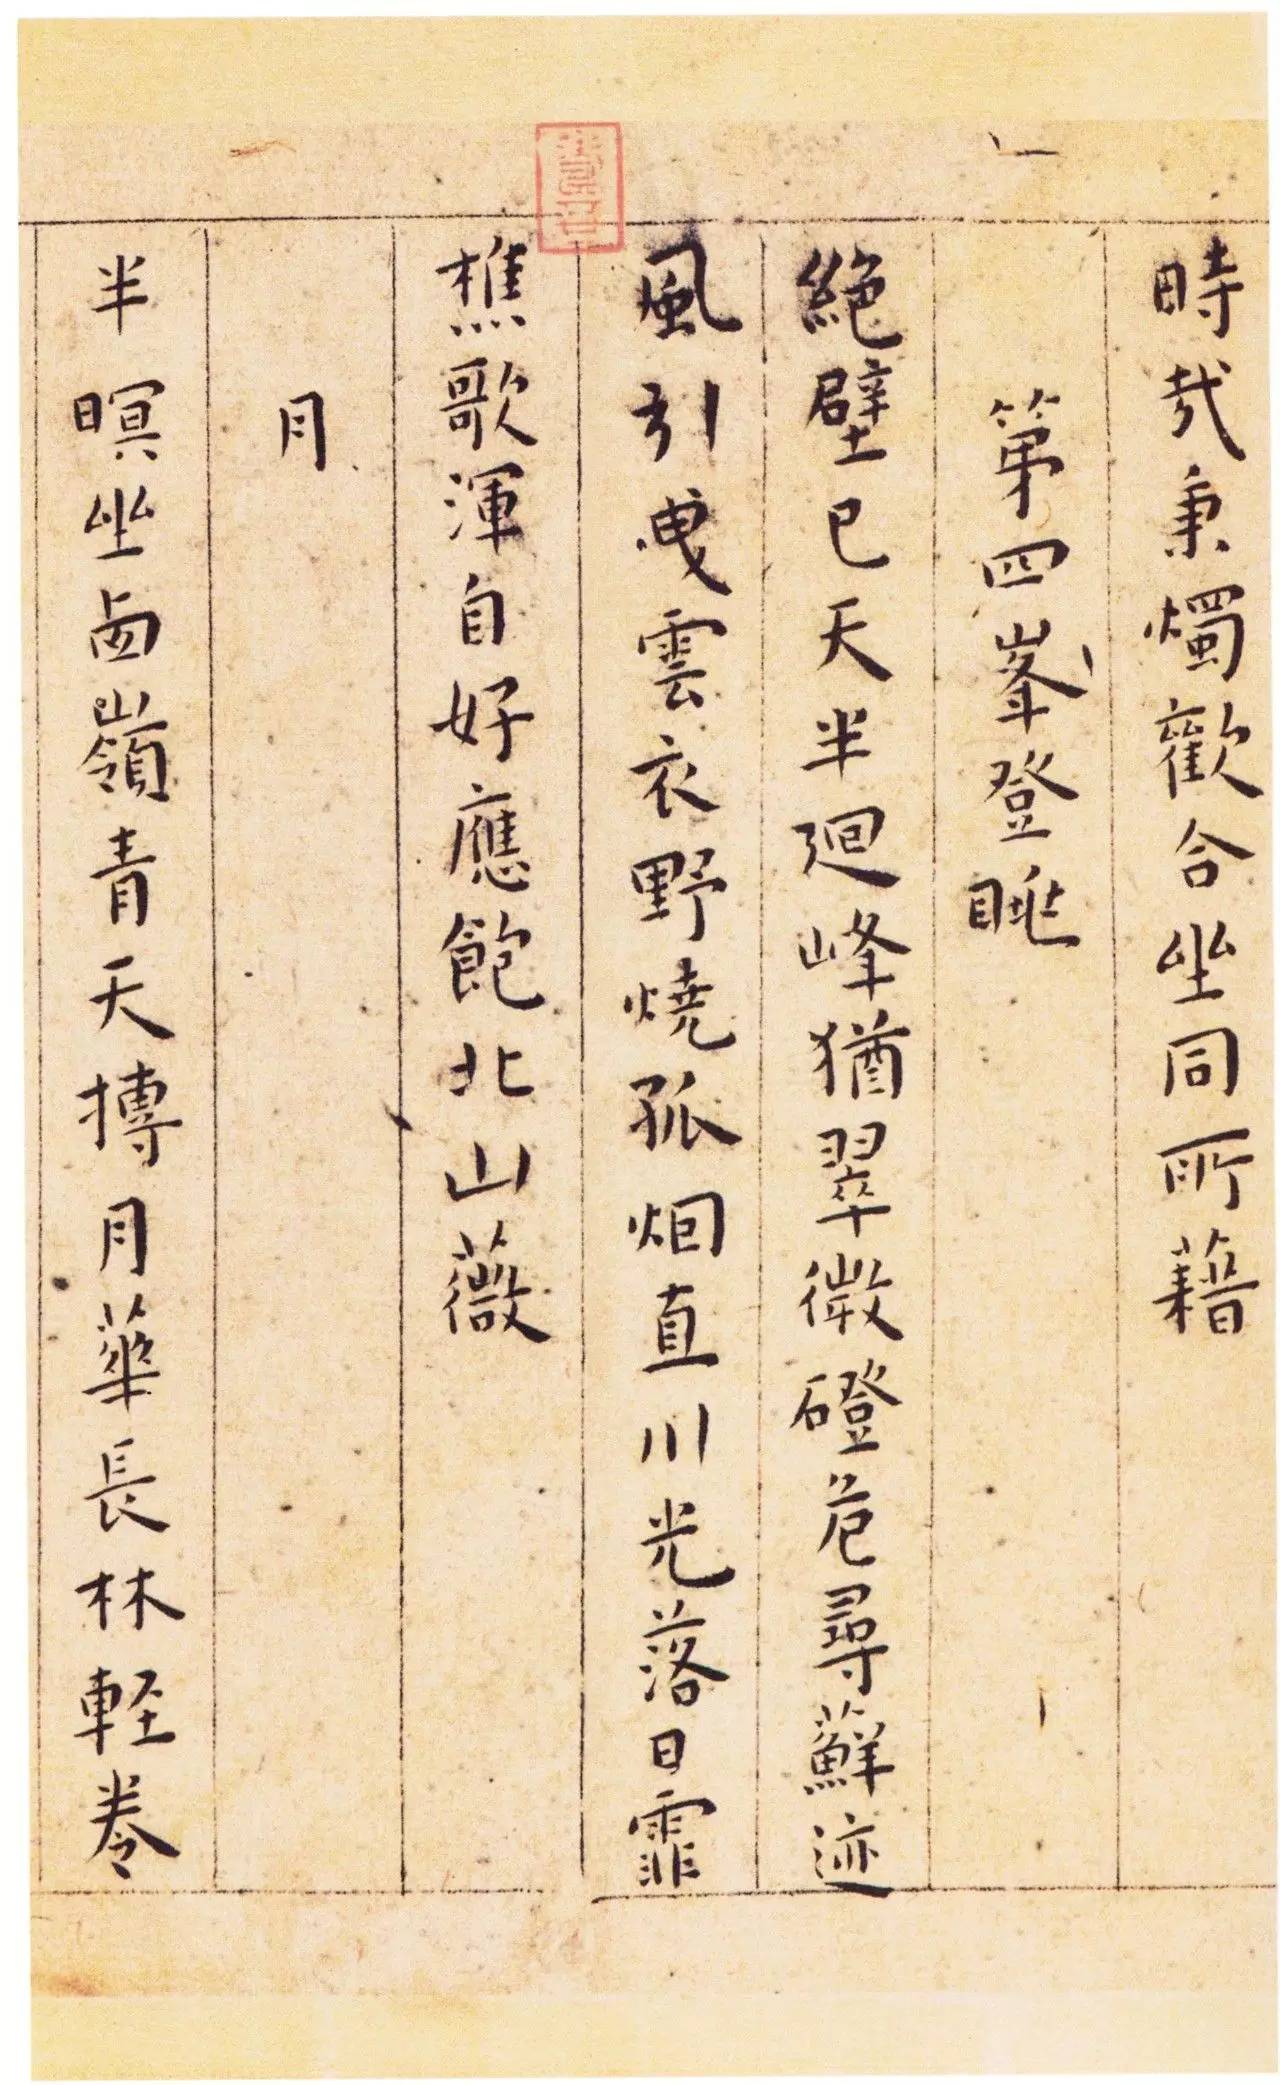 時哉秉燭歡合坐同所藉
第四峯登眺
絕壁已天半迴峰猶翠微磴危尋蘚迹
風引曳雲衣野燒孤烟直川光落日霏
樵歌渾自好應飽北山薇
月
半暝坐西嶺青天摶月華長林輕卷